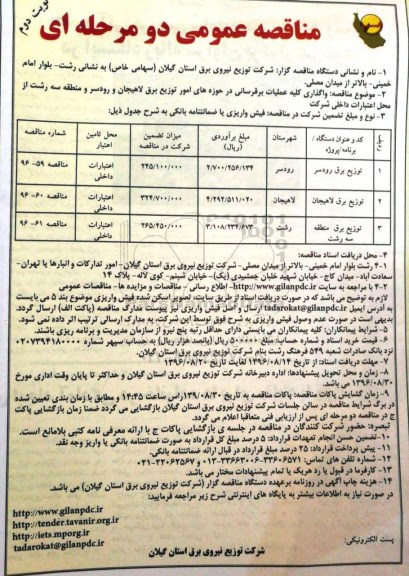 نوبت دوم
مناقصه عمومی دو مرحله ای
۱- نام و نشانی دستگاه مناقصه گزار: شرکت توزیع نیروی برق استان گیلان (سهامی خاص) به نشانی رشت- بلوار امام
خمینی- بالاتر از میدان مصلی.
۲- موضوع مناقصه: واگذاری کلیه عملیات برقرسانی در حوزه های امور توزیع برق لاهیجان و رودسر و منطقه سه رشت از
محل اعتبارات داخلی شرکت
۳- نوع و مبلغ تضمین شرکت در مناقصه: فیش واریزی یا ضمانتنامه بانکی به شرح جدول ذیل:
ردیف | کد و عنوان دستگاه / برنامه/پروژه | شهرستان | مبلغ برآوردی (ریال) | میزان تضمین شرکت در مناقصه | محل تامین اعتبار | شماره مناقصه
۱ | توزیع برق رودسر | رودسر | ۲/۷۰۰/۲۵۶/۱۳۴ | ۲۴۵/۱۰۰/۰۰۰ | اعتبارات داخلی | مناقصه ۵۹- ۹۶
۲ | توزیع برق لاهیجان | لاهیجان | ۴/۲۹۲/۵۱۱/۰۲۰ | ۳۲۴/۷۰۰/۰۰۰ | اعتبارات داخلی | مناقصه ۶۰- ۹۶
۳ | توزیع برق منطقه سه رشت | رشت | ۳/۱۰۸/۲۳۴/۶۷۳ | ۲۶۵/۴۵۰/۰۰۰ | اعتبارات داخلی | مناقصه ۶۱- ۹۶
۴- محل دریافت اسناد مناقصه:
۴-۱ رشت بلوار امام خمینی- بالاتر از میدان مصلی- شرکت توزیع نیروی برق استان گیلان- امور تدارکات و انبارها یا تهران-
سعادت آباد- میدان کاج- خیابان شهید خلبان جمشیدی (یک)- خیابان شبنم- کوی لاله- پلاک ۱۴
۴-۲ با مراجعه به سایت http://www.gilanpdc.ir- اطلاع رسانی - مناقصات و مزایده ها- مناقصات عمومی
لازم به توضیح می باشد که در صورت دریافت اسناد از طریق سایت، تصویر اسکن شده فیش واریزی موضوع بند ۵ می بایست
به آدرس ایمیل tadarokat@gilanpdc.ir ارسال و اصل فیش واریزی نیز پیوست مدارک مناقصه (پاکت الف) ارسال گردد.
بدیهی است در صورت عدم وصول فیش واریزی به شرح فوق توسط این شرکت، به مدارک ارسالی ترتیب اثر داده نمی شود.
۵- شرایط پیمانکاران: کلیه پیمانکاران می بایستی دارای حداقل رتبه پنج نیرو از سازمان مدیریت و برنامه ریزی باشند.
۶- قیمت خرید اسناد و شماره حساب: مبلغ ۵۰۰۰۰۰ ریال (پانصد هزار ریال) به حساب سپهر شماره ۰۲۰۷۳۹۴۱۸۰۰۰۰
نزد بانک صادرات شعبه ۵۴۹ فرهنگ رشت بنام شرکت توزیع نیروی برق استان گیلان.
۷- مهلت دریافت اسناد: از تاریخ ۱۳۹۶/۰۸/۱۴ لغایت تاریخ ۱۳۹۶/۰۸/۲۰
۸- زمان و محل تحویل پیشنهادها: اداره دبیرخانه شرکت توزیع نیروی برق استان گیلان و حداکثر تا پایان وقت اداری مورخ
۹۶/۰۸/۳۰ می باشد.
۹- زمان گشایش پاکات مناقصه: پاکات مناقصه به تاریخ ۱۳۹۶/۰۸/۳۰راس ساعت ۱۴:۴۵ و مطابق با زمان بندی تعیین شده
در برگ شرایط مناقصه در سالن جلسات شرکت توزیع نیروی برق استان گیلان بازگشایی می گردد ضمنا زمان بازگشایی پاکت
ج در مناقصه دو مرحله ای پس از ارزیابی فنی متعاقبا اعلام می گردد.
تبصره: حضور شرکت کنندگان در مناقصه در جلسه ی بازگشایی پاکات ج با ارائه معرفی نامه کتبی بلامانع است.
۱۰-تضمین حسن انجام تعهدات قرارداد: ۵ درصد مبلغ کل قرارداد به صورت ضمانتنامه بانکی یا واریز وجه نقد.
۱۱- پیش پرداخت قرارداد: ۲۵ درصد مبلغ قرارداد در قبال ارائه ضمانتنامه بانکی.
۱۲- شماره تلفن های تماس: ۳۳۶۰۶۵۷۱-۳۳۶۶۳۰۰۶-۰۱۳ و ۲۲۰۶۲۵۶۷-۰۲۱
۱۳- کارفرما در قبول یا رد هریک یا تمام پیشنهادات مختار می باشد.
۱۴- هزینه چاپ آگهی در روزنامه برعهده دستگاه مناقصه گزار (شرکت توزیع نیروی برق استان گیلان) می باشد.
در صورت نیاز به اطلاعات بیشتر به پایگاه های اینترنتی شرح زیر مراجعه فرمایید:
http://www.gilanpdc.ir
http://tender.tavanir.org.ir
http://iets.mporg.ir
tadarokat@gilanpdc.ir
پست الکترونیکی:
شرکت توزیع نیروی برق استان گیلان